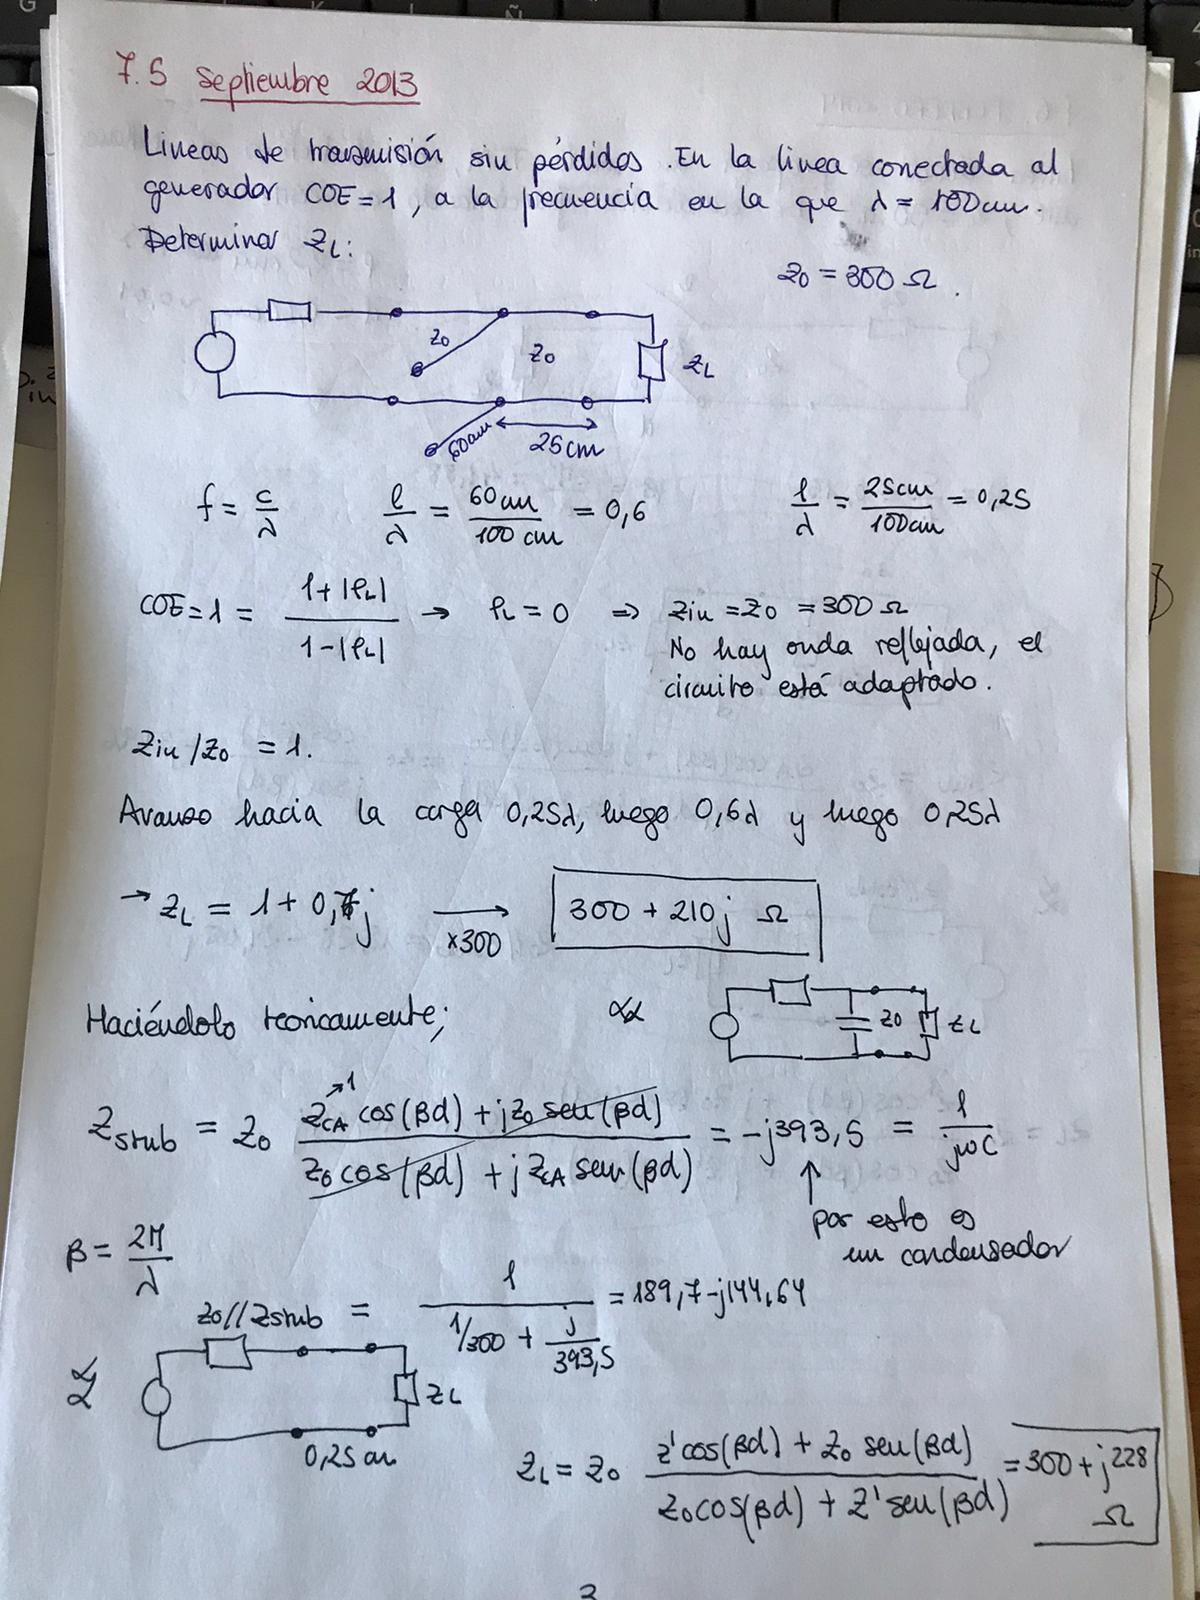 7.5 Septiembre 2013
Lineas de transmisión sin pérdidas. En la linea conectada al
generador COE = 1, a la frecuencia en la que λ = 100cm.
Determinar ZL:
Z0 = 300 Ω.
Z0
Z0
ZL
60cm
25cm
f = c/λ
l/λ = 60cm/100cm = 0,6
l/λ = 25cm/100cm = 0,25
COE = 1 = (1+|ρL|)/(1-|ρL|) → ρL = 0 ⇒ Zin = Z0 = 300 Ω
No hay onda reflejada, el
circuito está adaptado.
Zin/Z0 = 1.
Avanzo hacia la carga 0,25λ, luego 0,6λ y luego 0,25λ
→ ZL = 1 + 0,7j → ×300 300 + 210j Ω
Haciéndolo teoricamente;
Z0
ZL
Zstub = Z0 (ZCA cos(βd) + jZ0 sen(βd))/(Z0 cos(βd) + jZCA sen(βd)) = -j393,5 = 1/jωC
→1
por esto es
un condensador
β = 2Π/λ
Z0//Zstub = 1/(1/300 + j/393,5) = 189,7 - j144,64
ZL
0,25 cm
ZL = Z0 (Z' cos(βd) + Z0 sen(βd))/(Z0 cos(βd) + Z' sen(βd)) = 300 + j228
Ω